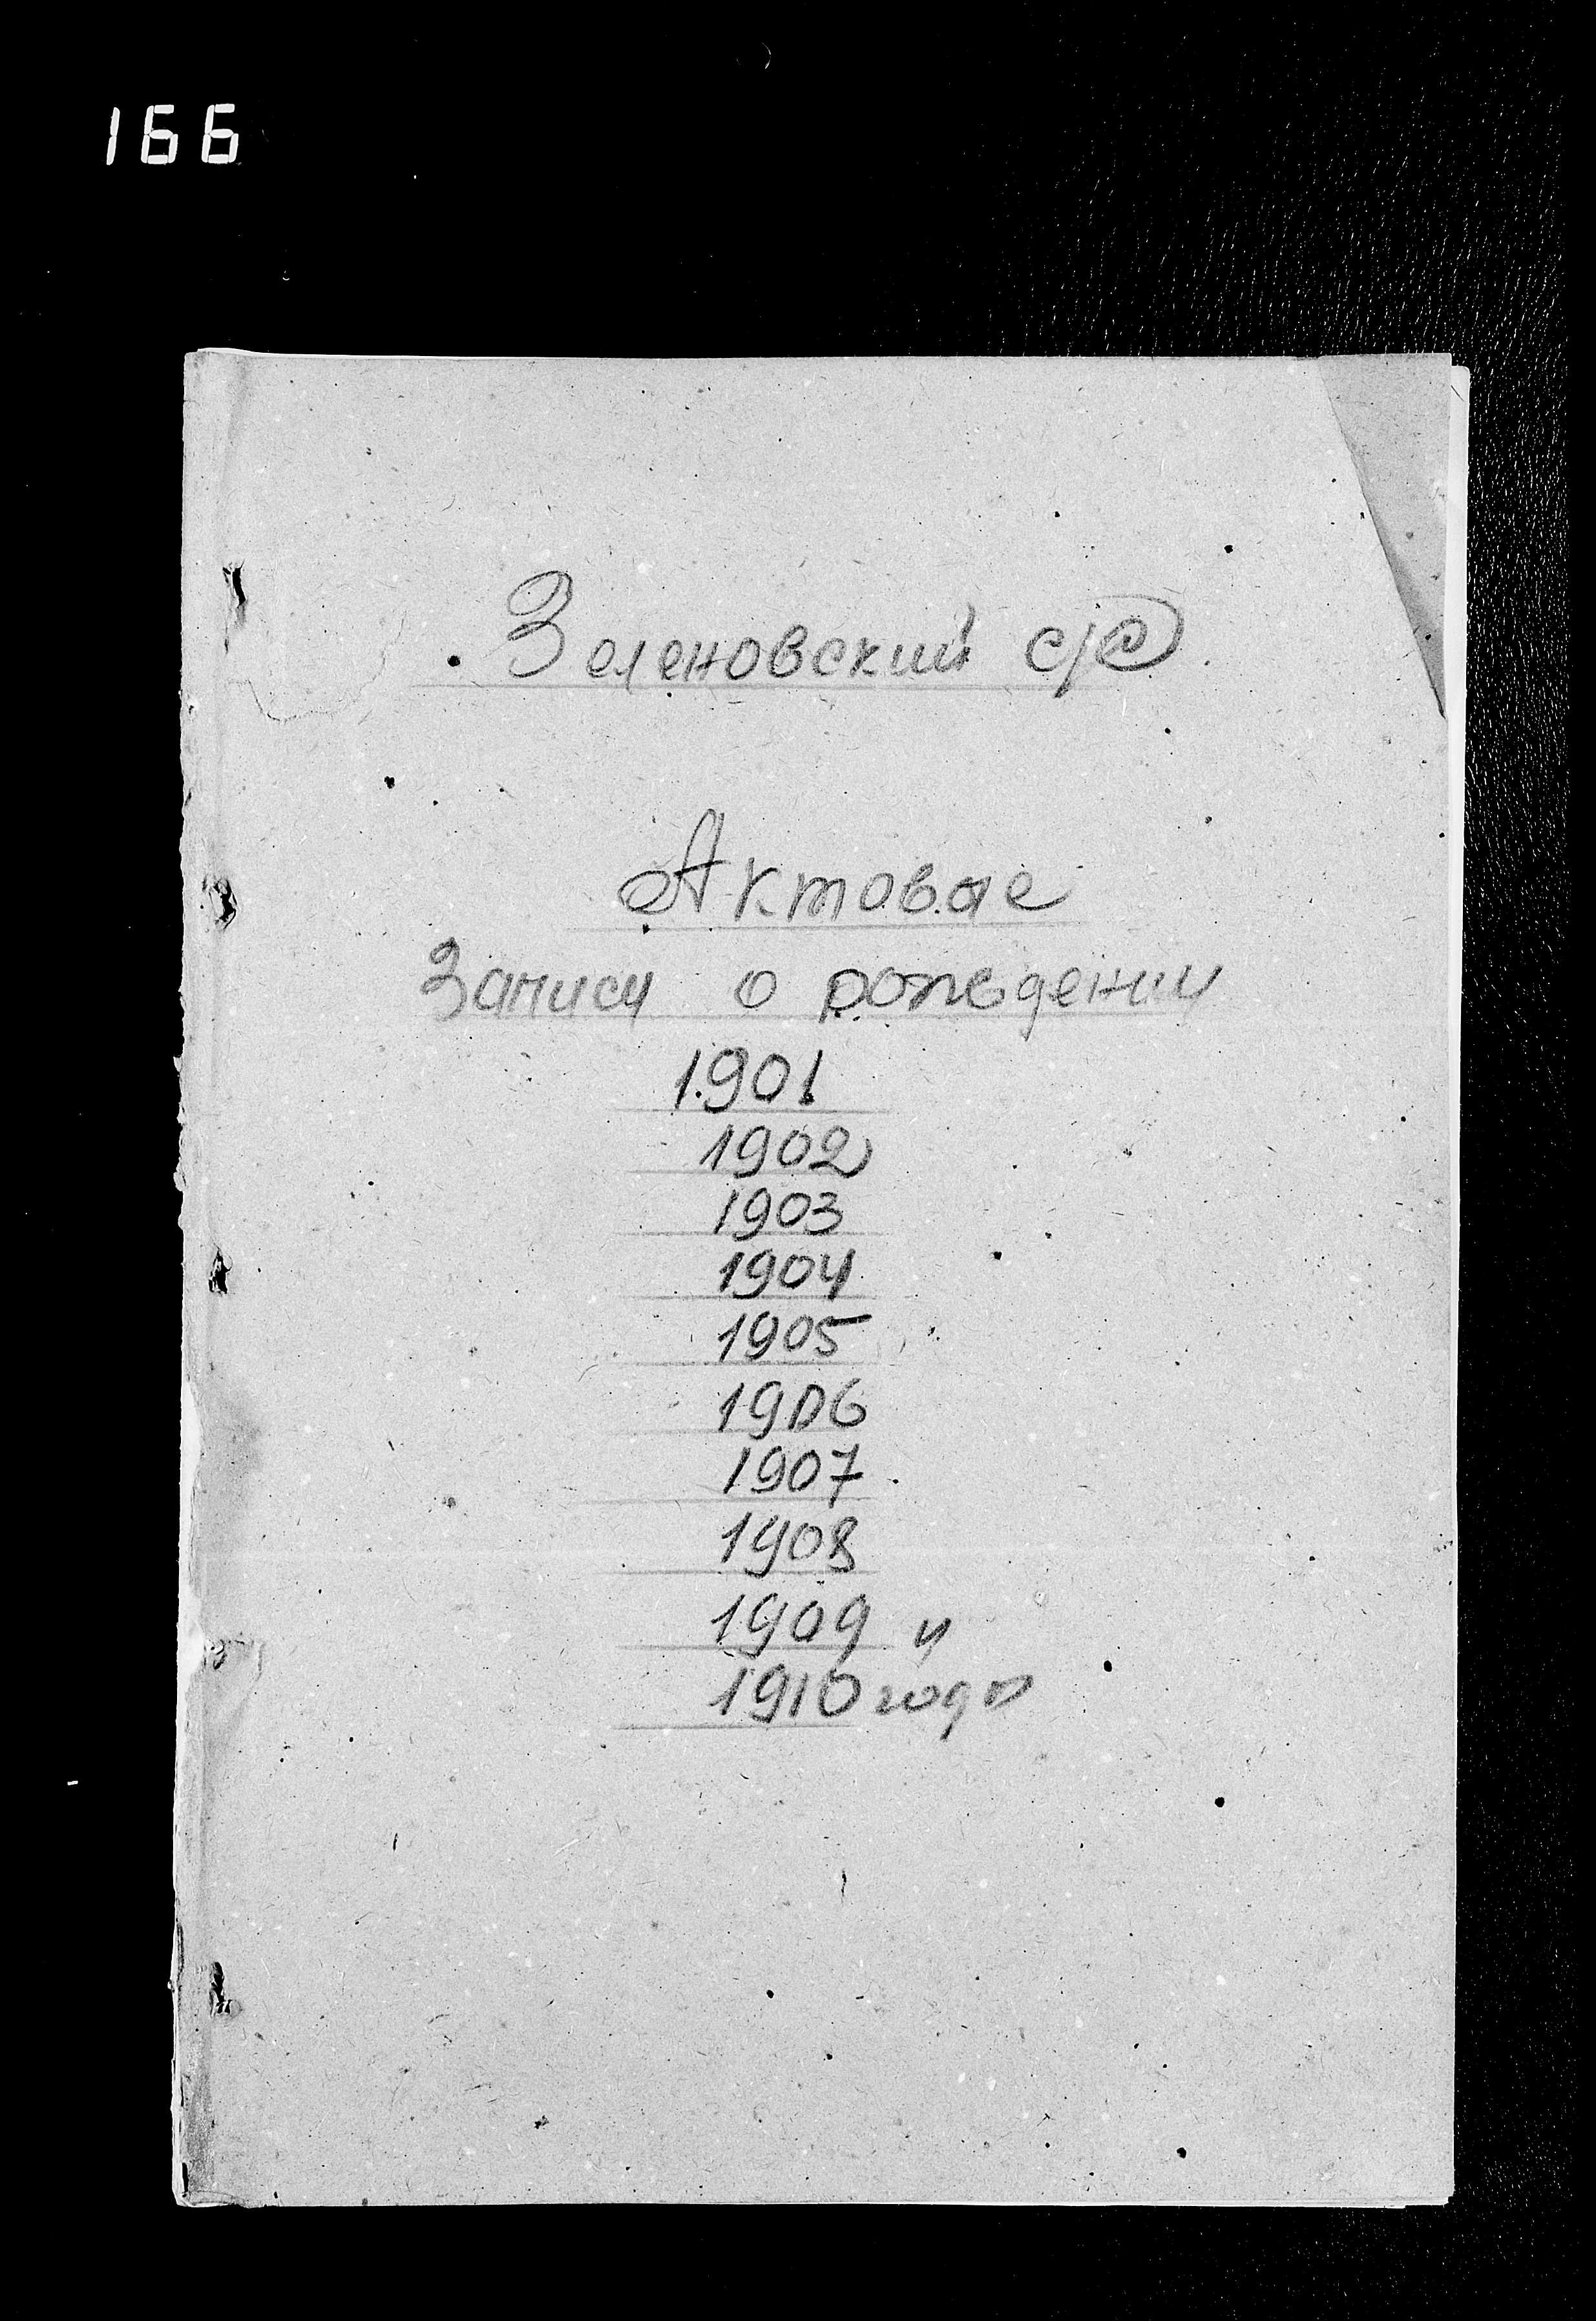 166
Зеленовский с/с
Актовые
Записи о рождении
1901
1902
1903
1904
1905
1906
1907
1908
1909 и
1910 годы